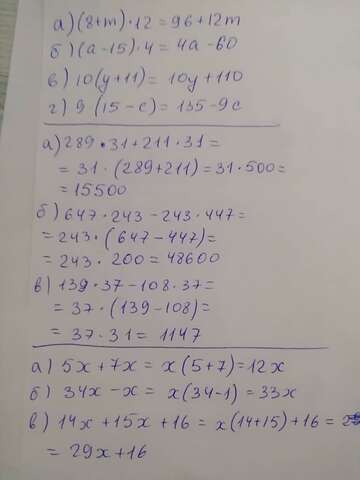 а) (8+m)·12 = 96+12m
б) (a-15)·4 = 4a-60
в) 10(y+11) = 10y+110
г) 9(15-c) = 135-9c
а) 289·31+211·31=
= 31·(289+211)=31·500=
= 15500
б) 647·243-243·447=
= 243·(647-447)=
= 243·200=48600
в) 139·37-108·37=
= 37·(139-108)=
= 37·31= 1147
а) 5x+7x = x(5+7)=12x
б) 34x-x = x(34-1)=33x
в) 14x+15x+16 = x(14+15)+16 =
= 29x+16